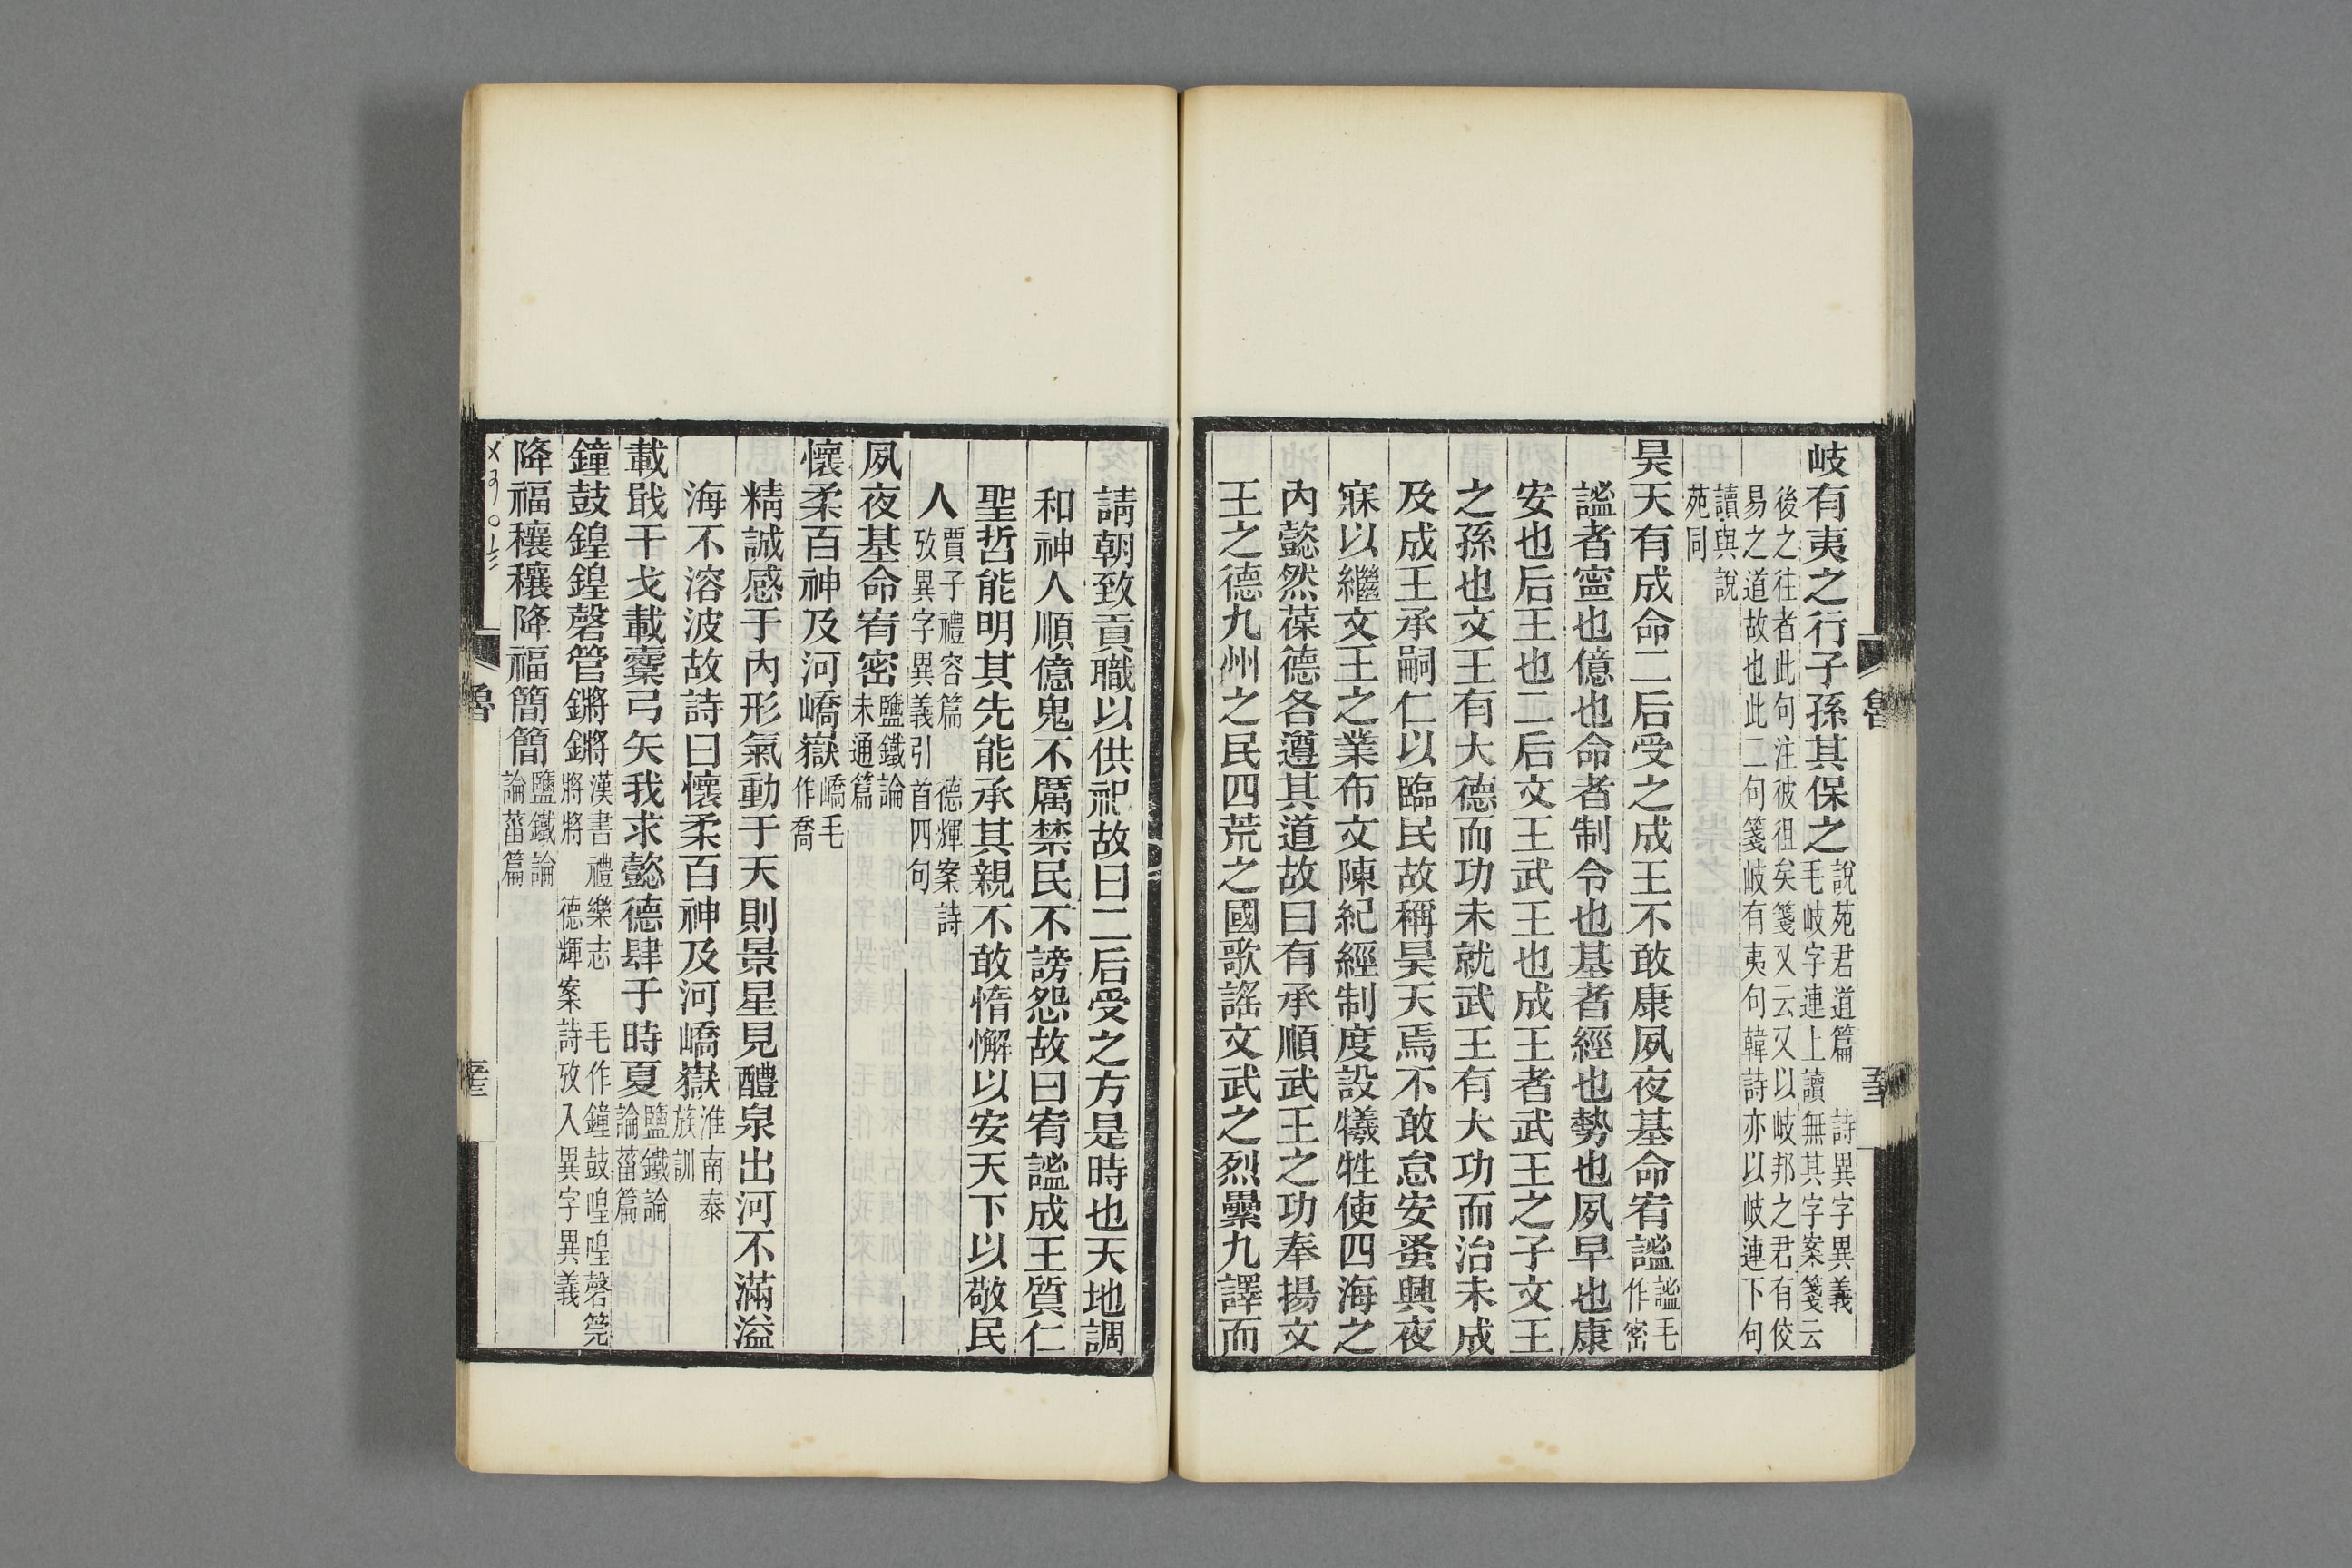 岐有夷之行子孫其保之說苑君道篇　詩異字異義
毛岐字連上讀無其字案箋云
後之往者此句注彼徂矣箋又云又以岐邦之君有佼
易之道故也此二句箋岐有夷句韓詩亦以岐連下句
讀與說
苑同
昊天有成命二后受之成王不敢康夙夜基命宥謐謐毛
作密
謐者寍也億也命者制令也基者經也勢也夙早也康
安也后王也二后文王武王也成王者武王之子文王
之孫也文王有大德而功未就武王有大功而治未成
及成王承嗣仁以臨民故稱昊天焉不敢怠安蚤興夜
寐以繼文王之業布文陳紀經制度設犧牲使四海之
內懿然葆德各遵其道故曰有承順武王之功奉揚文
王之德九州之民四荒之國歌謠文武之烈纍九譯而
請朝致貢職以供祀故曰二后受之方是時也天地調
和神人順億鬼不厲禁民不謗怨故曰宥謐成王質仁
聖哲能明其先能承其親不敢惰懈以安天下以敬民
人賈子禮容篇　德輝案詩
攷異字異義引首四句
夙夜基命宥密鹽鐵論
未通篇
懷柔百神及河嶠嶽嶠毛
作喬
精誠感于內形氣動于天則景星見醴泉出河不滿溢
海不溶波故詩曰懷柔百神及河嶠嶽淮南泰
族訓
載戢干戈載櫜弓矢我求懿德肆于時夏鹽鐵論
論菑篇
鐘鼓鍠鍠磬管鏘鏘漢書禮樂志　毛作鐘鼓喤喤磬筦
將將　德輝案詩攷入異字異義
降福穰穰降福簡簡鹽鐵論
論菑篇
魯